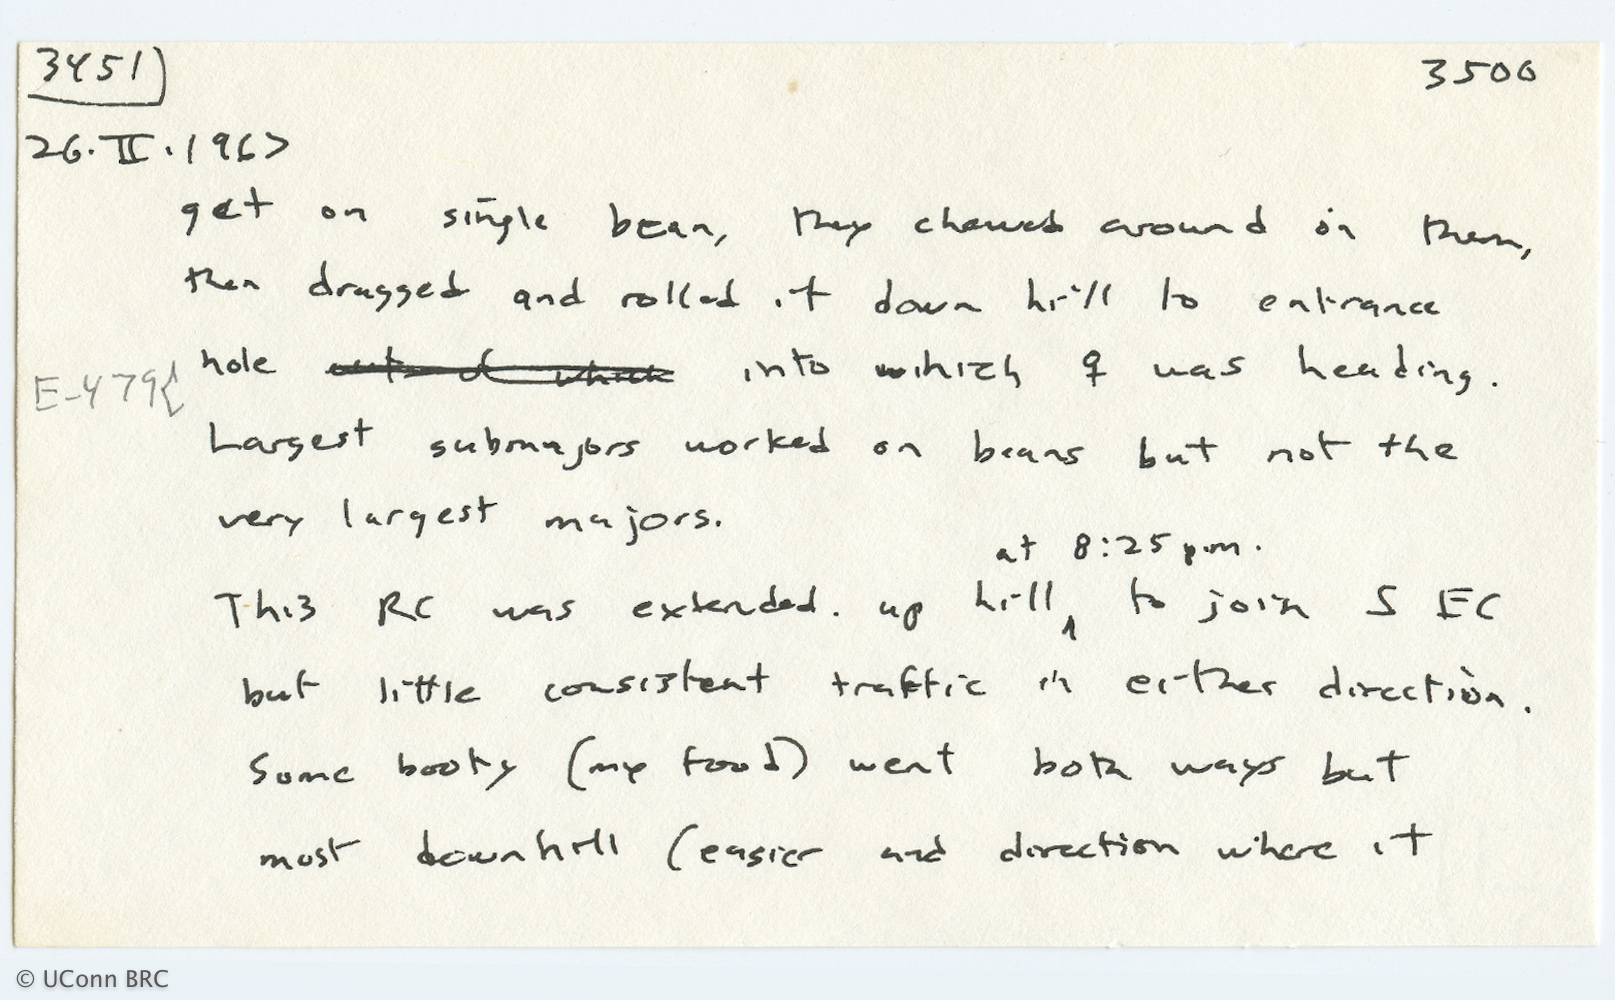 3451
3500
26.II.1967
get on single bean, they chewed around on them,
then dragged and rolled it down hill to entrance
hole out of which into which ☿ was heading.
E-479{
Largest submajors worked on beans but not the
very largest majors.
at 8:25 p.m.
This RC was extended. up hill ‸ to join S EC
but little consistent traffic in either direction.
Some booty (my food) went both ways but
most downhill (easier and direction where it
© UConn BRC